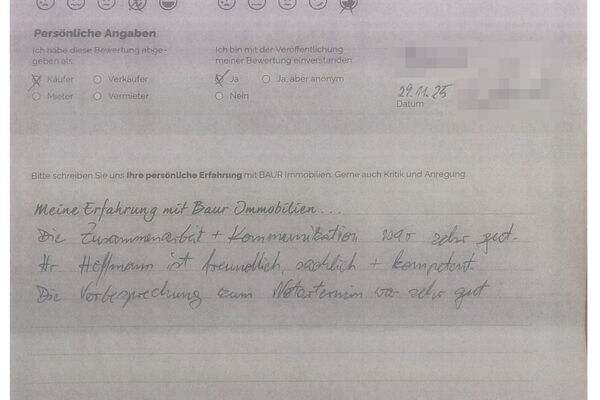 Persönliche Angaben
Ich habe diese Bewertung abge-
geben als:
Käufer
Verkäufer
Mieter
Vermieter
Ich bin mit der Veröffentlichung
meiner Bewertung einverstanden:
Ja
Ja, aber anonym
Nein
29.11.25
Datum
Bitte schreiben Sie uns Ihre persönliche Erfahrung mit BAUR Immobilien. Gerne auch Kritik und Anregung.
Meine Erfahrung mit Baur Immobilien...
Die Zusammenarbeit + Kommunikation war sehr gut.
Hr. Hoffmann ist freundlich, sachlich + kompetent.
Die Vorbesprechung zum Notartermin war sehr gut